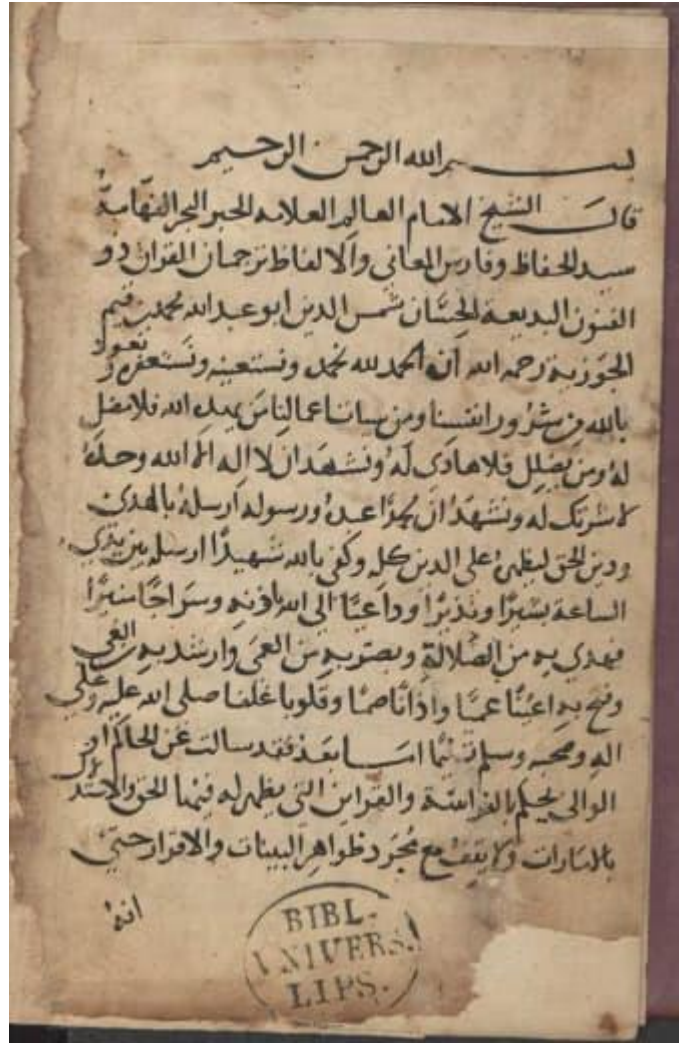 بســــم الله الرحمن الرحيم
قال الشيخ الامام العالم العلامه الحبر البحر الفهامة
سيد الحفاظ وفارس المعاني والالفاظ ترجمان القران ذو
الفنون البديعة الحسان شمس الدين ابو عبد الله محمد بن قيم
الجوزية رحمه الله ان الحمد لله نحمده ونستعينه ونستغفره ونعوذ
بالله من شرور انفسنا ومن سيات اعمالنا من يهده الله فلا مضل
له ومن يضلل فلا هادي له ونشهد ان لا اله الا الله وحده
لا شريك له ونشهد ان محمدا عبده ورسوله ارسله بالهدى
ودين الحق ليظهره على الدين كله وكفى بالله شهيدا ارسله بين يدي
الساعة بشيرا ونذيرا وداعيا الى الله باذنه وسراجا منيرا
فهدي به من الضلالة وبصر به من العمى وارشد به من الغي
وفتح به اعينا عميا واذانا صما وقلوبا غلفا صلى الله عليه وعلي
اله وصحبه وسلم تسليما اما بعد فقد سالت عن الحاكم او
الوالي يحكم بالفراسة والقراين التي يظهر له فيها الحق والاستدلال
بالامارات ولا يقف مع مجرد ظواهر البينات والاقرار حتى
انه
BIBL.
VNIVERS.
LIPS.